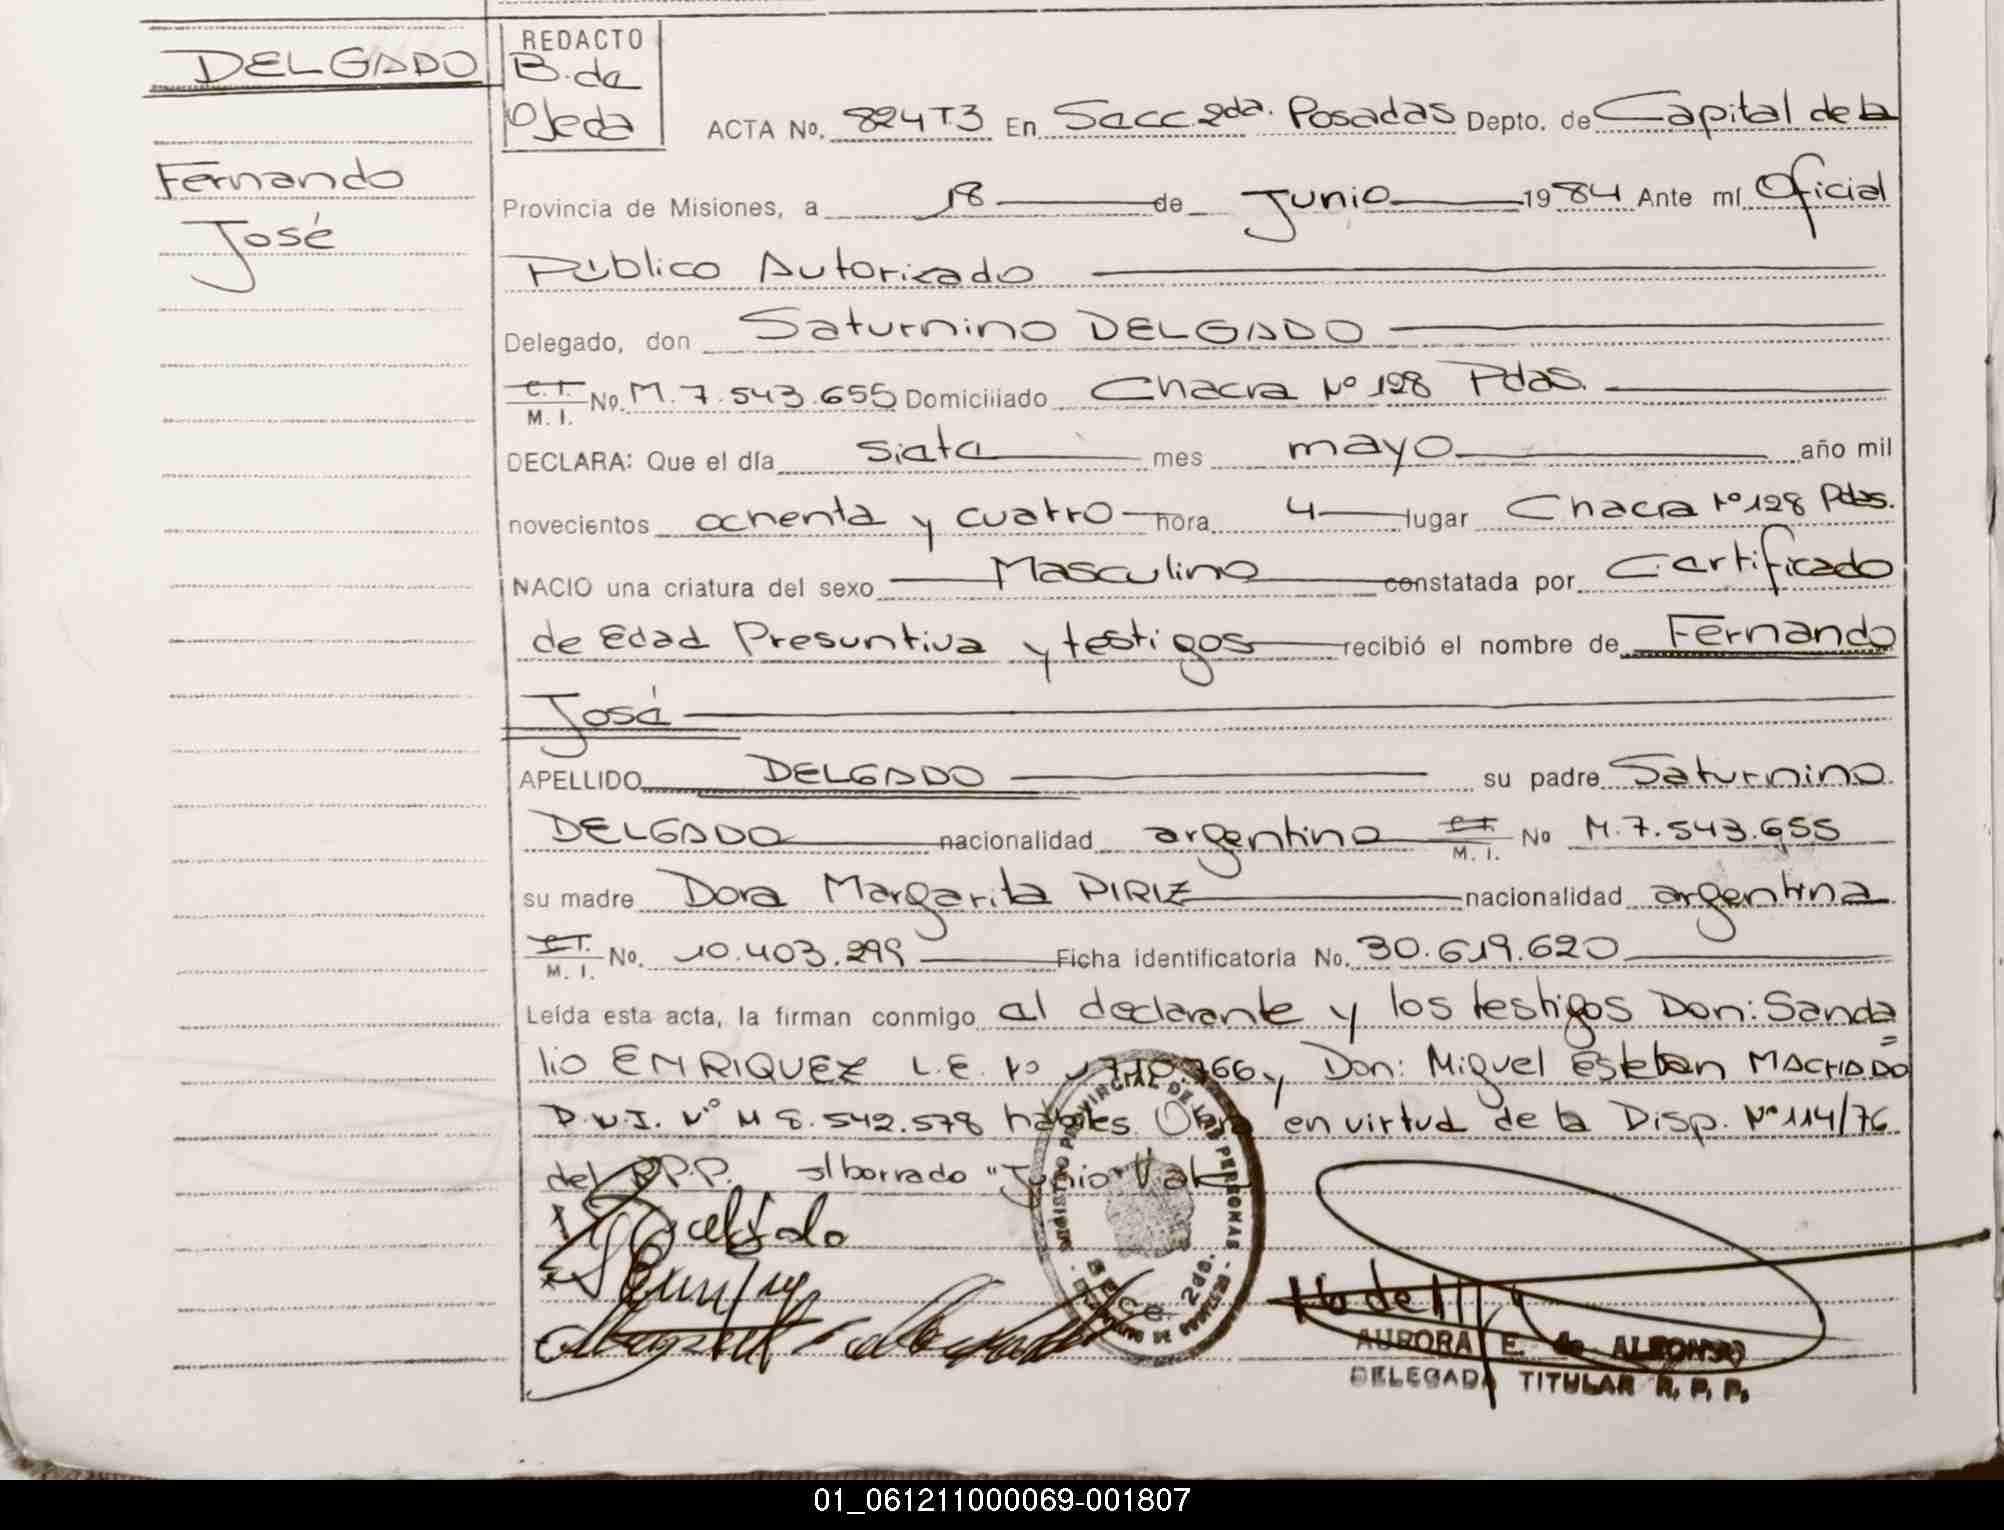 DELGADO
Fernando
José
REDACTO
B. de
Ojeda
ACTA No. 824T3 En Secc. 2da. Posadas Depto. de Capital de la
Provincia de Misiones, a 18 de Junio 1984 Ante mí Oficial
Público Autorizado
Delegado, don Saturnino DELGADO
C.I. M.I. No. M.7.543.655 Domiciliado Chacra Nº 128 Pdas.
DECLARA: Que el día siete mes mayo año mil
novecientos ochenta y cuatro hora 4 lugar Chacra Nº 128 Pdas.
NACIO una criatura del sexo Masculino constatada por Certificado
de Edad Presuntiva y testigos recibió el nombre de Fernando
José
APELLIDO DELGADO su padre Saturnino
DELGADO nacionalidad argentino C.I. M.I. No M.7.543.655
su madre Dora Margarita PIRIZ nacionalidad argentina
C.I. M.I. No. 10.403.299 Ficha identificatoria No. 30.619.620
Leída esta acta, la firman conmigo el declarante y los testigos Don: Sanda=
lio ENRIQUEZ L.E. Nº 766 y Don: Miguel Esteban MACHADO
D.N.I. Nº M 8.542.578 hábiles. Obra en virtud de la Disp. Nº 114/76
del R.P.P. s/borrado "Junio" Vale
REGISTRO PROVINCIAL DE LAS PERSONAS
SECC. 2da.
AURORA E. de ALFONSO
DELEGADA TITULAR R. P. P.
01_061211000069-001807